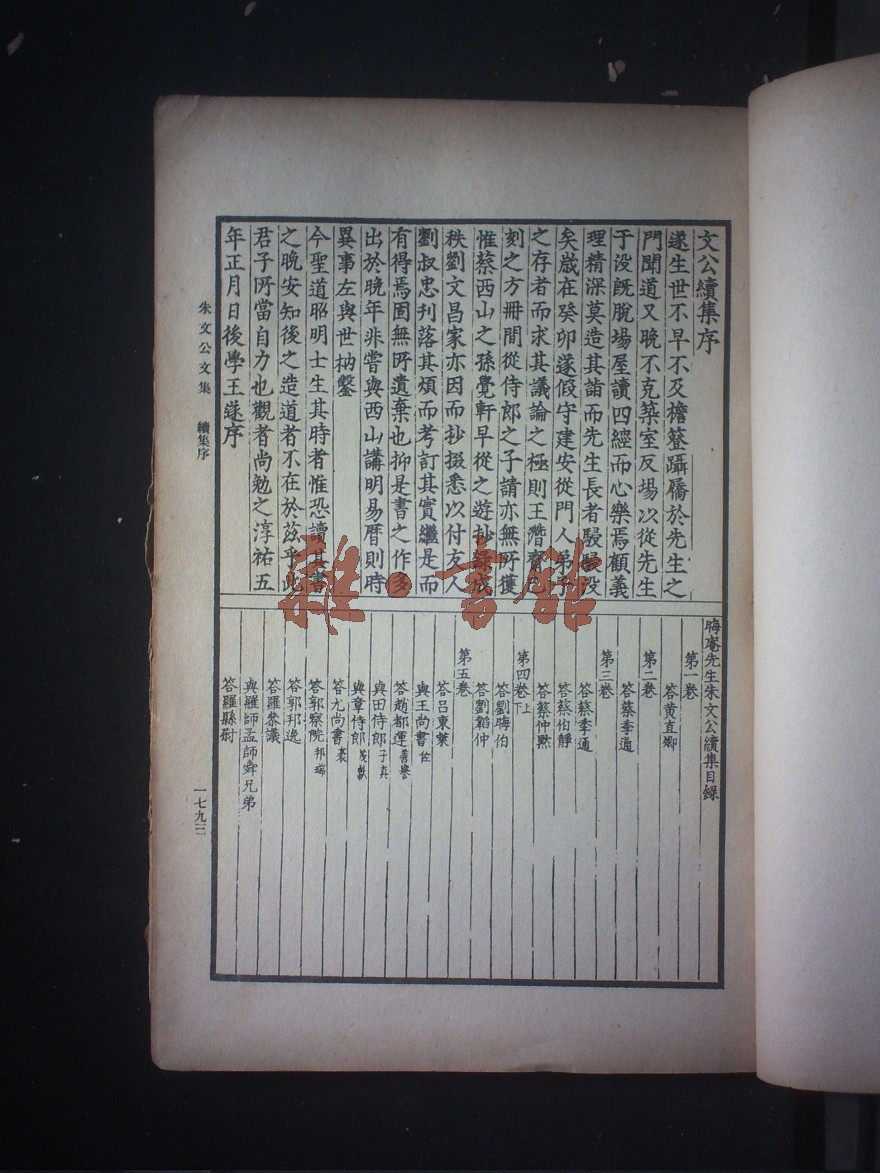 文公續集序
遂生世不早不及檐簦躡屩於先生之
門聞道又晚不克築室反場以從先生
于没旣脫場屋讀四經而心樂焉顧義
理精深莫造其 而先生長者駸駸没
矣歲在癸卯遂假守建安從門人弟子
之存者而求其議論之極則王潛齋已
刻之方冊間從侍郎之子請亦無所獲
惟蔡西山之孫覺軒早從之遊抄錄成
秩劉文昌家亦因而抄掇悉以付友人
劉叔忠刋落其煩而考訂其實繼是而
有得焉固無所遺棄也抑是書之作多
出於晚年非嘗與西山講明易曆則時
異事左與世枘鑿
今聖道昭明士生其時者惟恐讀其書
之晚安知後之造道者不在於茲乎此
君子所當自力也觀者尚勉之淳祐五
年正月日後學王遂序
晦庵先生朱文公續集目録
第一卷
答黃直卿
第二卷
答蔡季通
第三卷
答蔡季通
答蔡伯靜
答蔡仲黙
第四卷上下
答劉晦伯
答劉韜仲
第五卷
答吕東萊
與王尚書佐
答趙都運善譽
與田侍郎子真
與章侍郎茂獻
答尤尚書袤
答郭察院邦瑞
答郭邦逸
答羅叅議
與羅師孟師舜兄弟
答羅縣尉
朱文公文集 續集序
一七九三
雜·書館